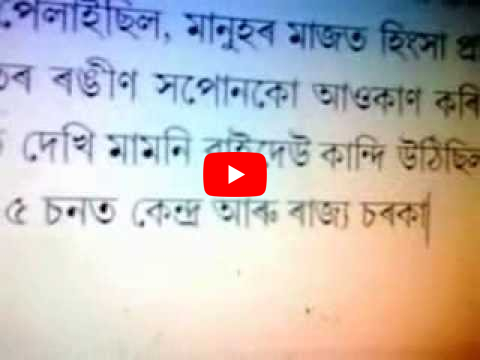 পেলাইছিল, মানুহৰ মাজত হিংসা
ৰঙীণ সপোনকো আওকাণ কৰি
দেখি মামনি বাইদেউ কান্দি উঠিছিল
৫ চনত কেন্দ্ৰ আৰু ৰাজ্য চৰকা